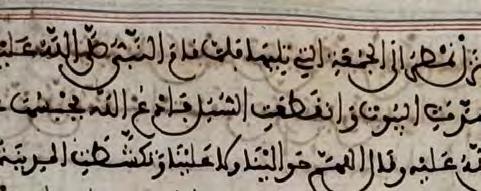 تزل تمطر الى الجمعة التي تليها فلما قام النبي صلى الله عليه
البيوت وانقطعت السبل فادع الله يحبسها
الله عليه وقال اللهم حوالينا ولا علينا وتكشطت المدينة